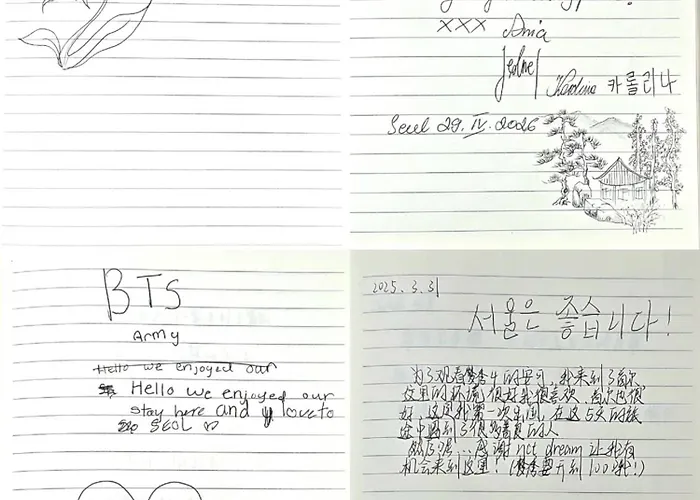 xxx Ania
Karolina 카롤리나
Seul 29.IV.2026
BTS
Army
Hello we enjoyed our
Hello we enjoyed our
stay here and love to
SEOL
2025.3.31
서울은 좋습니다!
为了观看梦秀4的安可,我来到了首次
这里的环境很好我很喜欢
好,这是我第一次出国,在这5天的旅
途中遇到了很多善良的人
感谢 nct dream 让我有
机会来到这里!(梦秀要开到100代!)